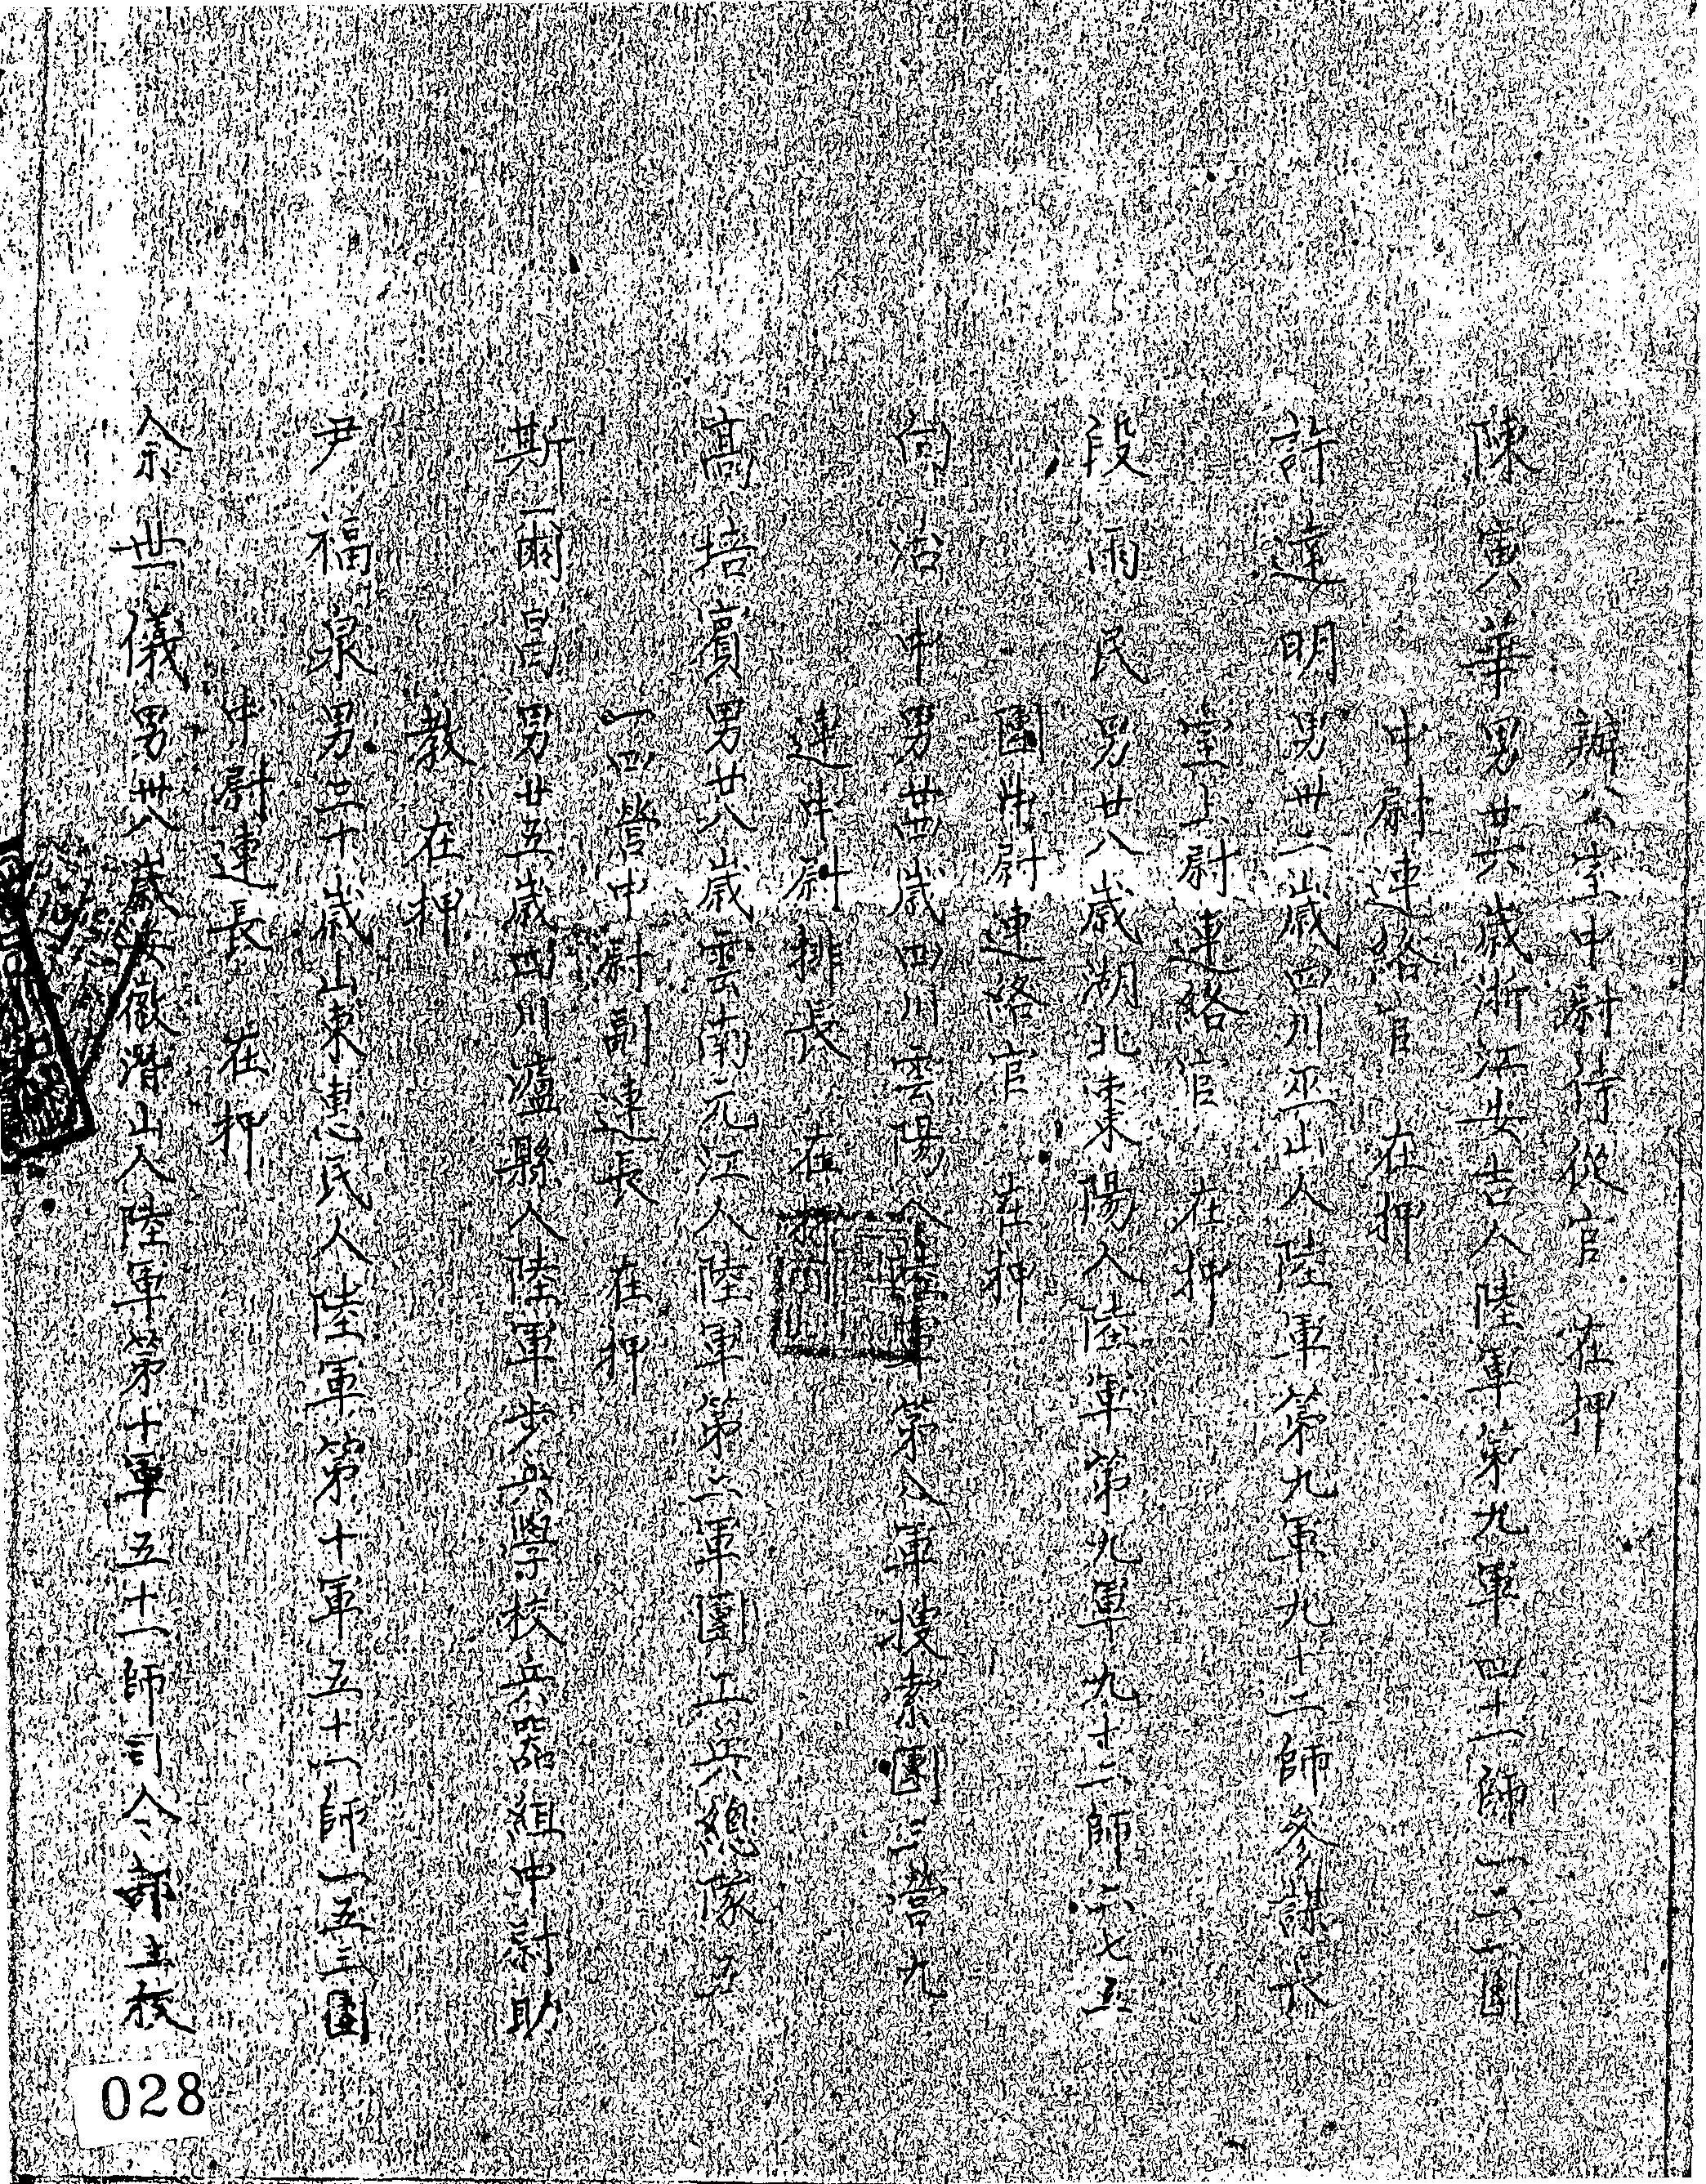 辦公室中尉侍從官 在押
陳寅華 男廿六歲浙江安吉人陸軍第九軍四十一師一二一團
中尉連絡官 在押
許達明 男卅二歲四川巫山人陸軍第九軍九十二師參謀長
室上尉連絡官 在押
段雨民 男廿八歲湖北棗陽人陸軍第九軍九十二師二七五
團中尉連絡官 在押
向治中 男廿四歲四川雲陽人陸軍第八軍搜索團三營九
連中尉排長 在押
高培賓 男廿八歲雲南元江人陸軍第六軍團工兵總隊五
一四營中尉副連長 在押
斯爾昌 男廿五歲四川瀘縣人陸軍步兵學校兵器組中尉助
教 在押
尹福泉 男三十歲山東惠民人陸軍第十軍五十一師一五三團
中尉連長 在押
余世儀 男卅八歲安徽潛山人陸軍第十軍五十一師司令部上校
028